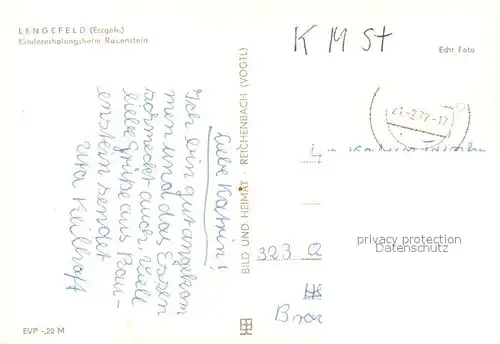 LENGEFELD (Erzgeb.)
Kindererholungsheim Rauenstein
K M St
Echt Foto
-2.77-17
liebe Katrin!
Ich bin gut angekom
men und das Essen
schmeckt auch. Viele
liebe grüße aus Rau-
enstein sendet
Rita Keilhoff
BILD UND HEIMAT · REICHENBACH (VOGTL)
privacy protection
Datenschutz
323 Q
EVP -,20 M